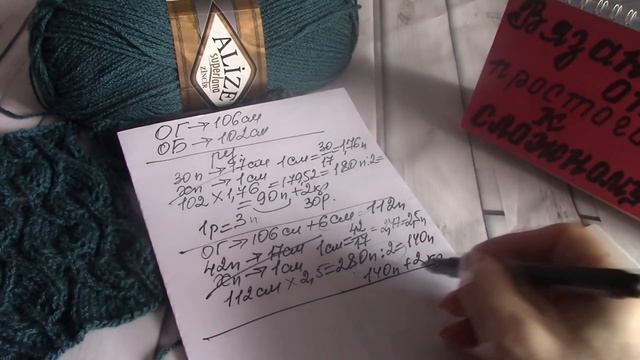 ALIZE
superlana
ZINCIR
Вязан
от
простого
к
сложном
ОГ → 106см
ОБ → 102см
30п → 17см 1см = 30/17 = 1,76п
хп → 1см
102 × 1,76 = 179,52 = 180п : 2 =
= 90п + 2кр
1р = 3п 30р.
ОГ → 106см + 6см = 112п
42п → 17см 1см = 42/17 = 2,47 = 2,5п
хп → 1см
112см × 2,5 = 280п : 2 = 140п
140п + 2кр